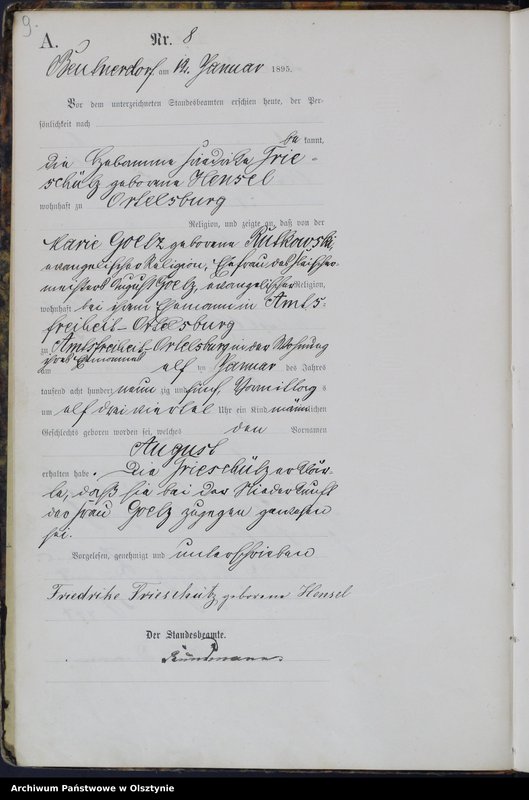 9.
A. Nr. 8
Beutnerdorf am 12. Januar 1895.
Vor dem unterzeichneten Standesbeamten erschien heute, der Per-
sönlichkeit nach
be kannt,
die Hebamme Friedrike Frie-
schütz geborene Hensel
wohnhaft zu Ortelsburg
Religion, und zeigte an, daß von der
Marie Goetz geborene Rutkowski,
evangelischer Religion, Ehefrau des Fleischer-
meisters August Goetz, evangelischer Religion,
wohnhaft bei ihrem Ehemann in Amts-
freiheit-Ortelsburg
zu Amtsfreiheit-Ortelsburg in der Wohnung
ihres Ehemannes
am elf ten Januar des Jahres
tausend acht hundert neun zig und fünf, Vormittag s
um elf drei viertel Uhr ein Kind männlichen
Geschlechts geboren worden sei, welches den Vornamen
August
erhalten habe. Die Frieschütz erklär-
te, daß sie bei der Niederkunft
der Frau Goetz zugegen gewesen
sei.
Vorgelesen, genehmigt und unterschrieben
Friedrike Frieschütz geborene Hensel
Der Standesbeamte.
Archiwum Państwowe w Olsztynie